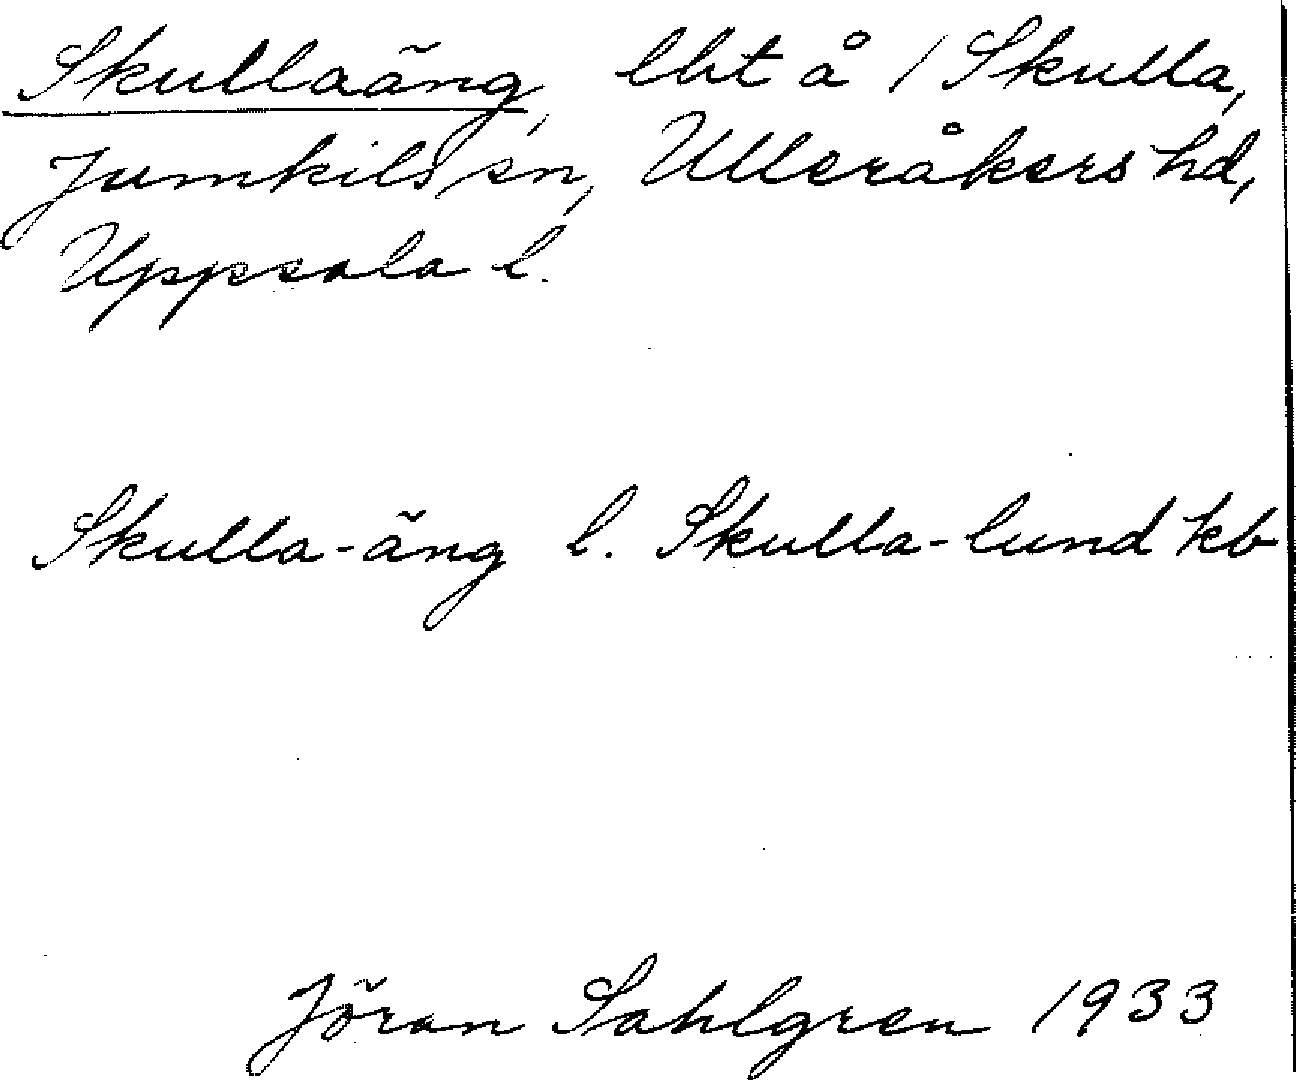 Skullaäng, lht å 1 Skulla,
Jumkils sn, Ulleråkers hd,
Uppsala l.
Skulla-äng l. Skulla-lund kb
Jöran Sahlgren 1933